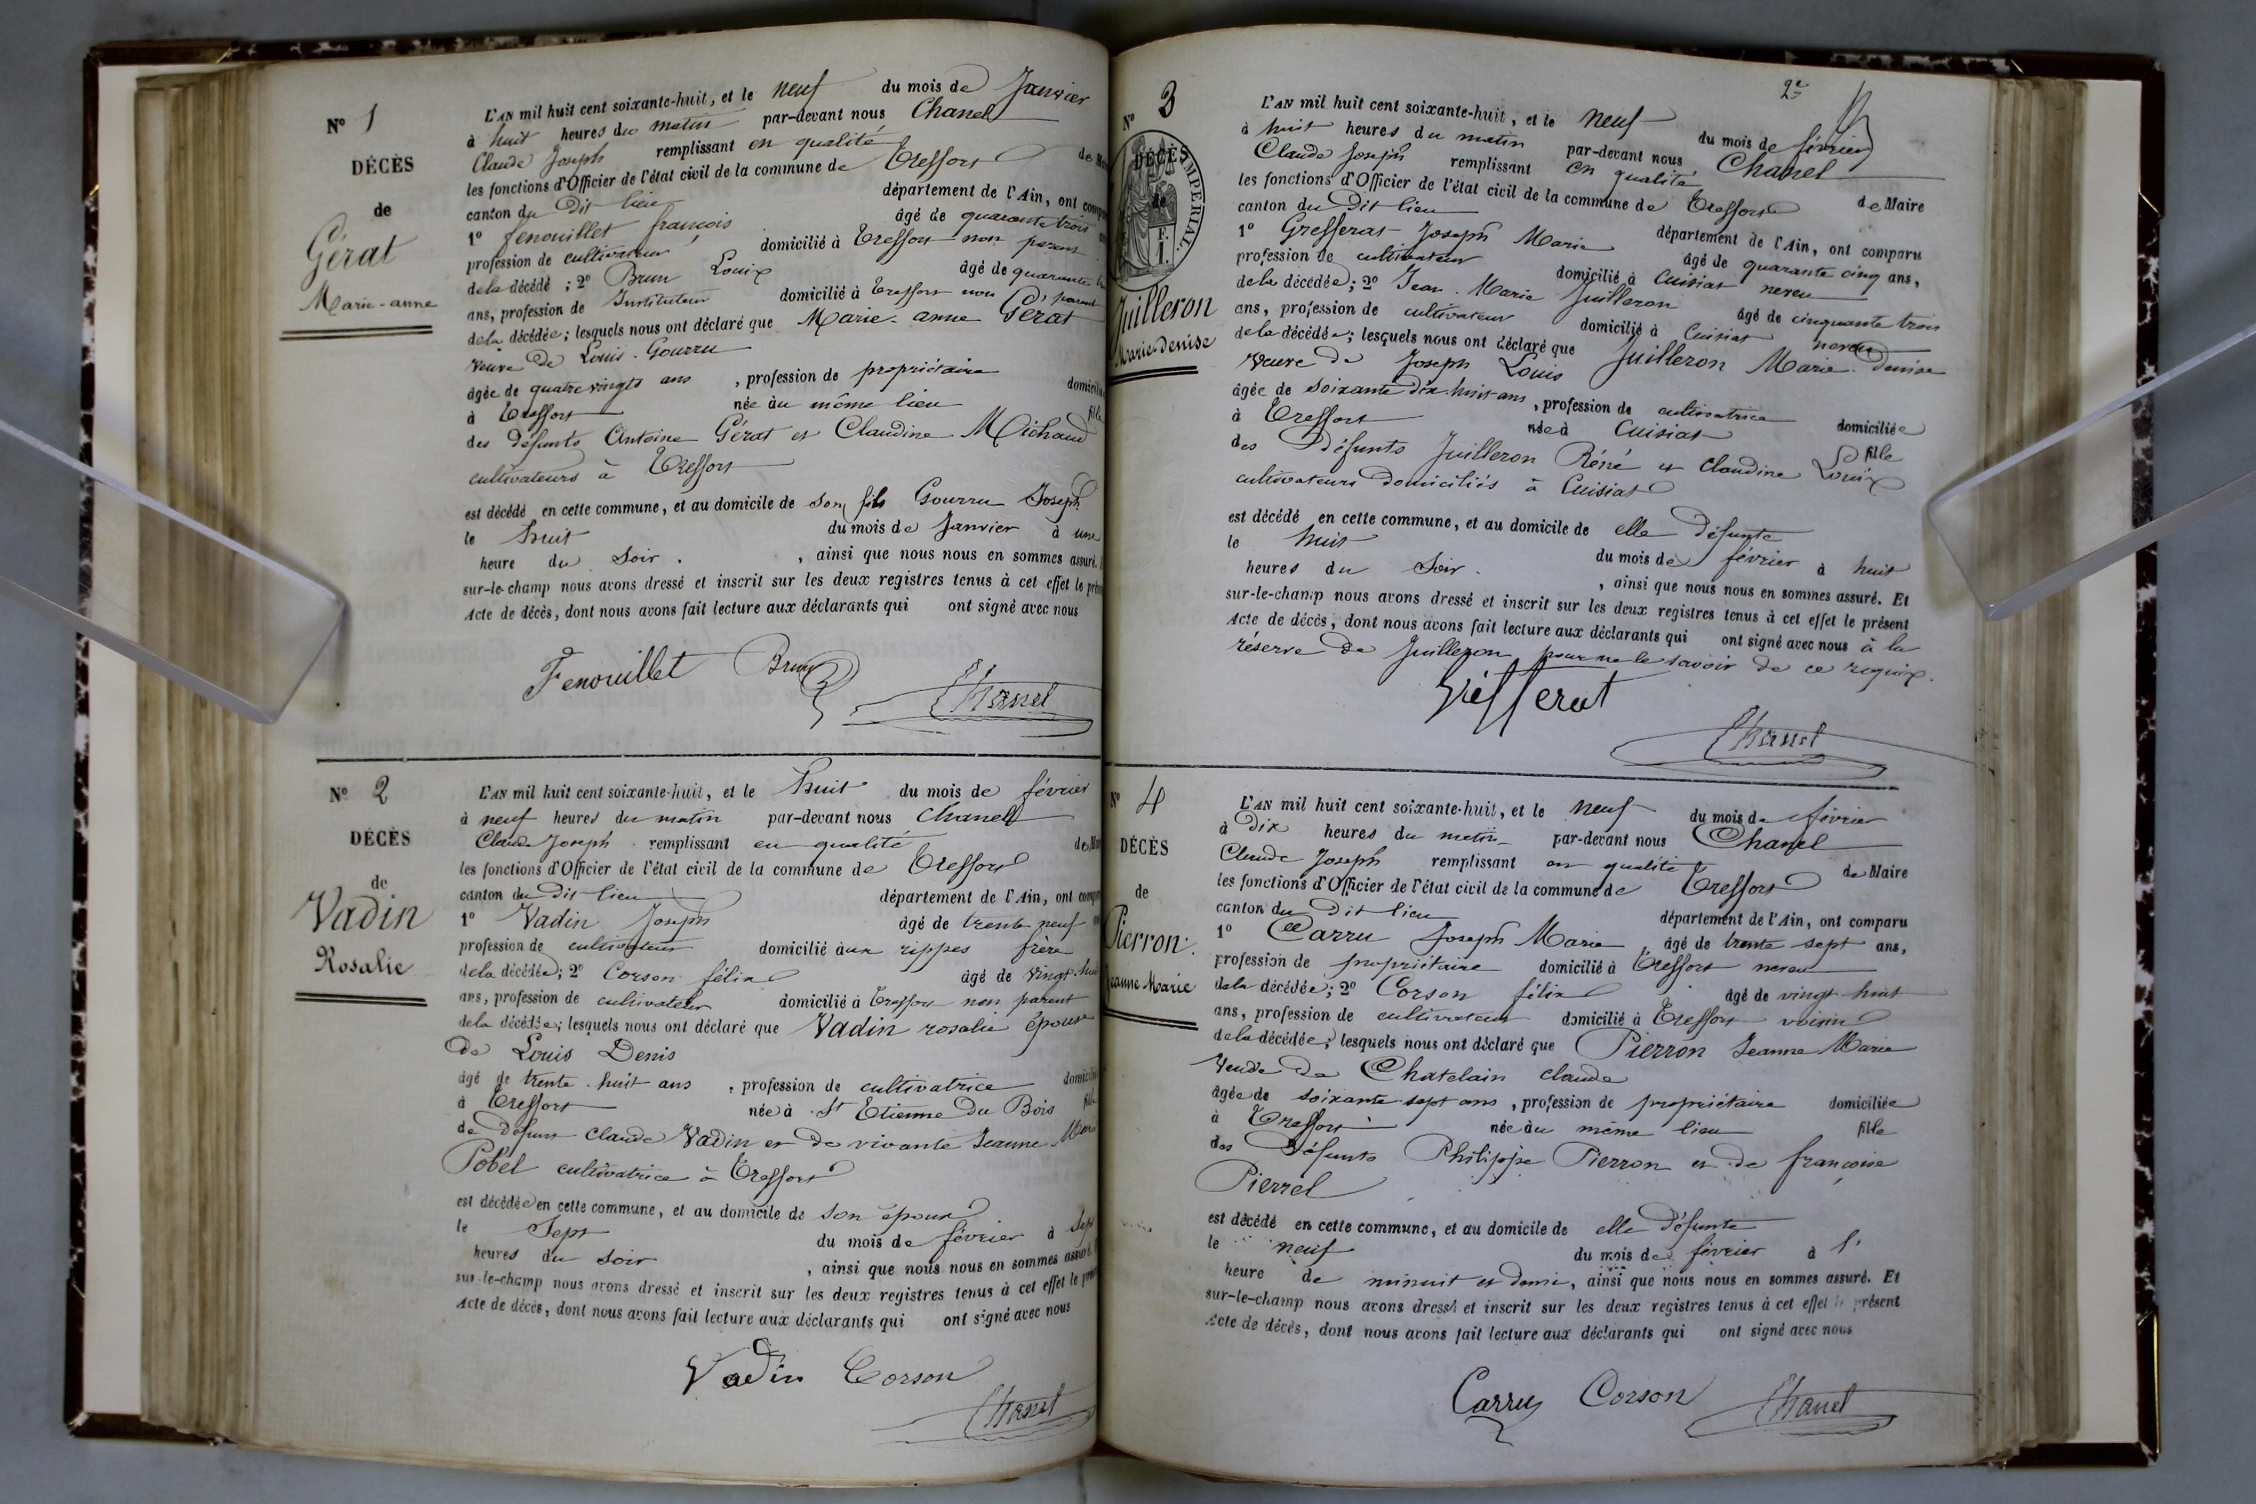 N° 1
DÉCÈS
de
Gérat
Marie-anne
L'AN mil huit cent soixante-huit, et le neuf du mois de Janvier
à huit heures du matin par-devant nous Chanel
Claude Joseph remplissant en qualité de
les fonctions d'Officier de l'état civil de la commune de Treffort
canton du Dit lieu département de l'Ain, ont
1° fenouillet françois âgé de quarante trois
profession de cultivateur domicilié à Treffort non parent
dela décédé ; 2° Brun Louis âgé de quarante
ans, profession de Instituteur domicilié à Treffort non parent
dela décédée; lesquels nous ont déclaré que Marie-anne Gérat
veuve de Louis Gourru
âgée de quatre vingts ans , profession de propriétaire
à Treffort née au même lieu fille
des défunts Antoine Gérat et Claudine Michaud
cultivateurs à Treffort
est décédé en cette commune, et au domicile de son fils Gourru Joseph
le huit du mois de Janvier à une
heure du soir . , ainsi que nous nous en sommes assuré.
sur-le-champ nous avons dressé et inscrit sur les deux registres tenus à cet effet le
Acte de décès, dont nous avons fait lecture aux déclarants qui ont signé avec nous
Fenouillet Brun Chanel
N° 2
DÉCÈS
de
Vadin
Rosalie
L'AN mil huit cent soixante-huit, et le huit du mois de février
à neuf heures du matin par-devant nous Chanel
Claude Joseph remplissant en qualité de
les fonctions d'Officier de l'état civil de la commune de Treffort
canton du Dit lieu département de l'Ain, ont
1° Vadin Joseph âgé de trente neuf
profession de cultivateur domicilié aux rippes frère
dela décédée; 2° Corson félix âgé de vingt huit
ans, profession de cultivateur domicilié à Treffort non parent
dela décédée; lesquels nous ont déclaré que Vadin rosalie épouse
De Louis Denis
âgé de trente-huit ans , profession de cultivatrice
à Treffort née à St Etienne Du Bois fille
de défunt claude Vadin et de vivante Jeanne Marie
Pobel cultivatrice à Treffort
est décédée en cette commune, et au domicile de son époux
le Sept du mois de février à Sept
heures du soir , ainsi que nous nous en sommes assuré.
sur-le-champ nous avons dressé et inscrit sur les deux registres tenus à cet effet le
Acte de décès, dont nous avons fait lecture aux déclarants qui ont signé avec nous
Vadin Corson
Chanel
2e
N° 3
DÉCÈS
de
IMPÉRIAL.
Juilleron
Marie-Denise
L'AN mil huit cent soixante-huit, et le neuf du mois de février
à huit heures du matin par-devant nous Chanel
Claude Joseph remplissant en qualité de Maire
les fonctions d'Officier de l'état civil de la commune de Treffort
canton du Dit lieu département de l'Ain, ont comparu
1° Grefferat Joseph Marie âgé de quarante cinq ans,
profession de cultivateur domicilié à Cuisiat neveu
dela décédée; 2° Jean-Marie Juilleron âgé de cinquante trois
ans, profession de cultivateur domicilié à Cuisiat neveu
dela décédée; lesquels nous ont déclaré que Juilleron Marie-denise
veuve de Joseph Louis
âgée de soixante dix-huit ans , profession de cultivatrice domiciliée
à Treffort née à Cuisiat fille
des Défunts Juilleron Réné et claudine Louis
cultivateurs domiciliés à Cuisiat
est décédé en cette commune, et au domicile de elle défunte
le huit du mois de février à huit
heures du soir . , ainsi que nous nous en sommes assuré. Et
sur-le-champ nous avons dressé et inscrit sur les deux registres tenus à cet effet le présent
Acte de décès, dont nous avons fait lecture aux déclarants qui ont signé avec nous à la
réserve de Juilleron pour ne le savoir de ce requis.
Grèfferat
Chanel
N° 4
DÉCÈS
de
Pierron
Jeanne Marie
L'AN mil huit cent soixante-huit, et le neuf du mois de février
à Dix heures du matin par-devant nous Chanel
Claude Joseph remplissant en qualité de Maire
les fonctions d'Officier de l'état civil de la commune de Treffort
canton du Dit lieu département de l'Ain, ont comparu
1° Carru Joseph Marie âgé de trente sept ans,
profession de propriétaire domicilié à Treffort neveu
dela décédée; 2° Corson félix âgé de vingt-huit
ans, profession de cultivateur domicilié à Treffort voisin
dela décédée; lesquels nous ont déclaré que Pierron Jeanne Marie
veuve de Chatelain claude
âgée de soixante sept ans , profession de propriétaire domiciliée
à Treffort née au même lieu fille
des Défunts Philippe Pierron et de françoise
Pierrel
est décédé en cette commune, et au domicile de elle défunte
le neuf du mois de février à l'
heure de minuit et demi, ainsi que nous nous en sommes assuré. Et
sur-le-champ nous avons dressé et inscrit sur les deux registres tenus à cet effet le présent
Acte de décès, dont nous avons fait lecture aux déclarants qui ont signé avec nous
Carru Corson Chanel